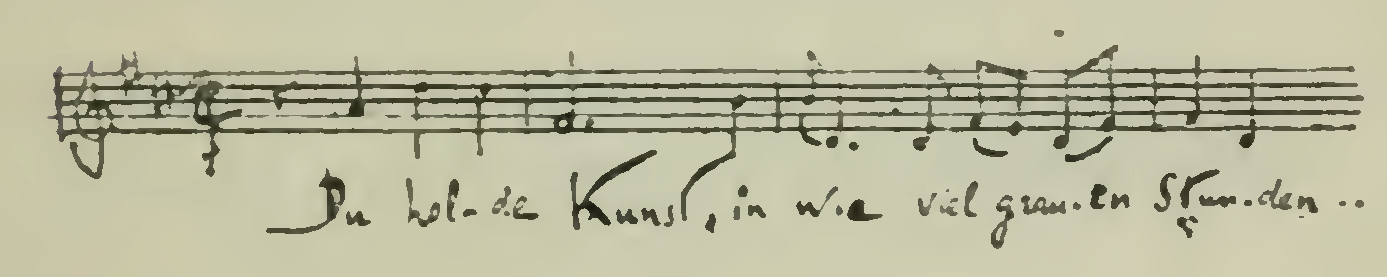 Du hol-de Kunst, in wie viel grau-en Stun-den ..